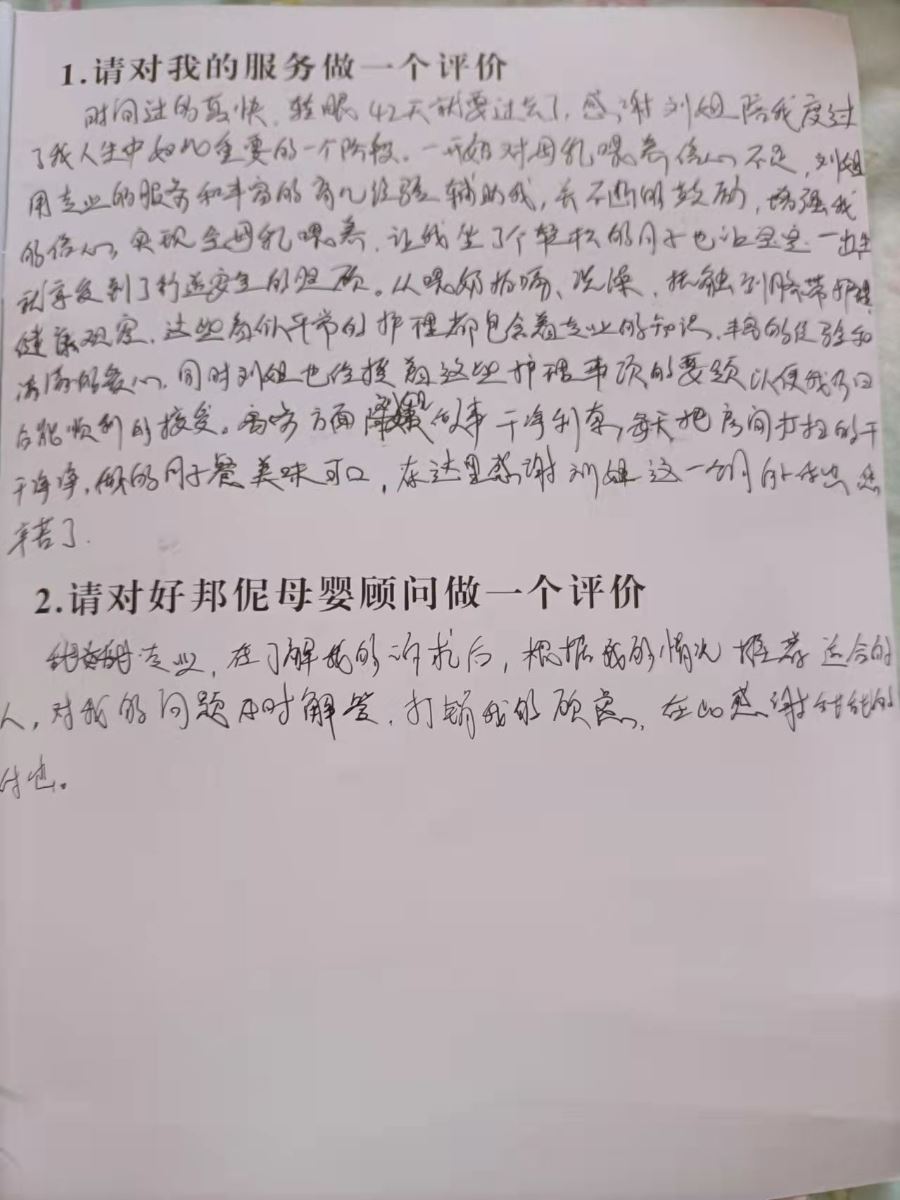 1.请对我的服务做一个评价
时间过的真快，转眼42天就要过去了，感谢刘姐陪我度过
了我人生中如此重要的一个阶段。一开始对母乳喂养信心不足，刘姐
用专业的服务和丰富的育儿经验辅助我，并不断的鼓励，增强我
的信心，实现全母乳喂养，让我坐了个轻松的月子也让宝宝一出生
就享受到了舒适安全的照顾。从喂奶拍嗝、洗澡、抚触到脐带护理
健康观察，这些看似平常的护理都包含着专业的知识，丰富的经验和
满满的爱心，同时刘姐也传授着这些护理事项的要领以便我今后
能顺利的接受。方面刘姐做事干净利索，每天把房间打扫的干
干净净，做的月子餐美味可口，在这里感谢刘姐这一个月的付出，您
辛苦了。
2.请对好邦伲母婴顾问做一个评价
专业，在了解我的诉求后，根据我的情况推荐适合的
人，对我的问题及时解答，打消我的顾虑，在此感谢甜甜的
付出。